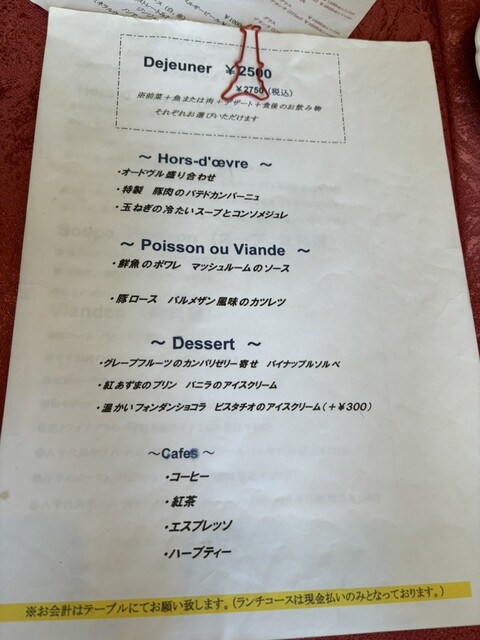 Dejeuner ¥2500
¥2750(税込)
※前菜+魚または肉+デザート+食後のお飲み物
それぞれお選びいただけます
~ Hors-d'œvre ~
・オードヴル盛り合わせ
・特製 豚肉のパテドカンパーニュ
・玉ねぎの冷たいスープとコンソメジュレ
~ Poisson ou Viande ~
・鮮魚のポワレ マッシュルームのソース
・豚ロース パルメザン風味のカツレツ
~ Dessert ~
・グレープフルーツのカンパリゼリー寄せ パイナップルソルベ
・紅あずまのプリン バニラのアイスクリーム
・温かいフォンダンショコラ ピスタチオのアイスクリーム(+¥300)
~Cafes ~
・コーヒー
・紅茶
・エスプレッソ
・ハーブティー
※お会計はテーブルにてお願い致します。(ランチコースは現金払いのみとなっております。)